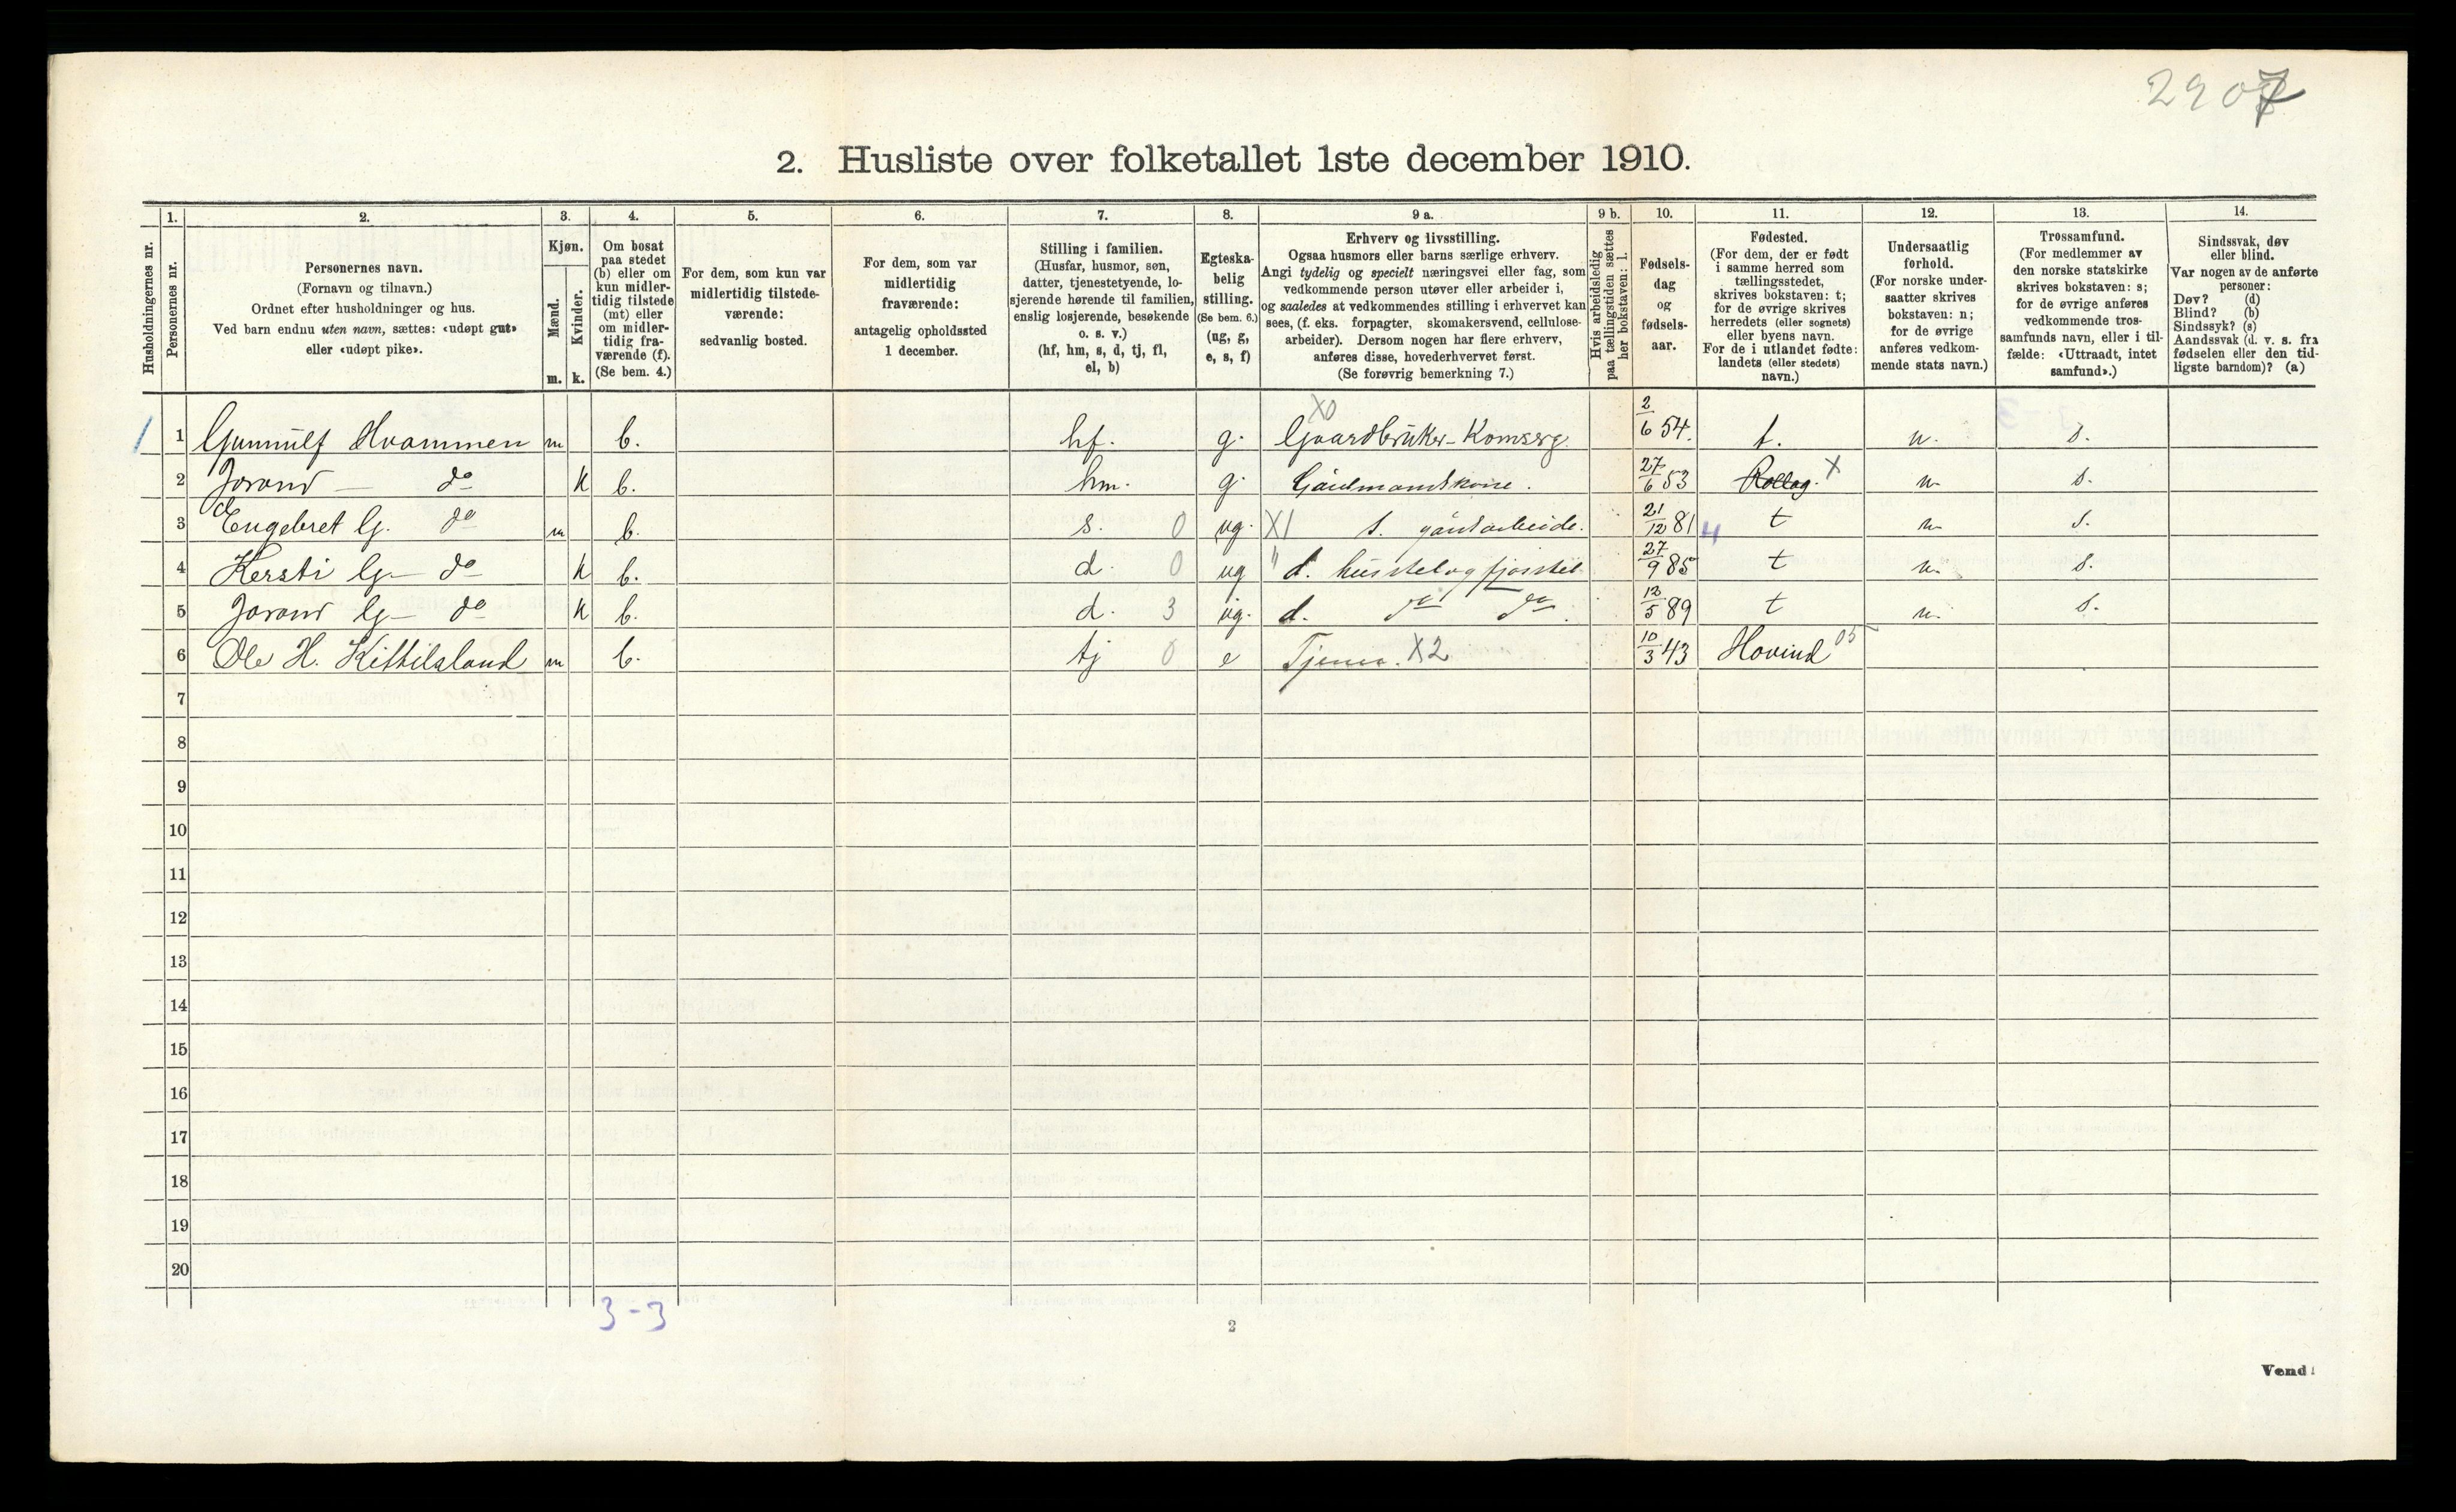 2907
2. Husliste over folketallet 1ste december 1910.
1. 2. 3. 4. 5. 6. 7. 8. 9 a. 9 b. 10. 11. 12. 13. 14.
Husholdningernes nr.
Personernes nr.
Personernes navn.
(Fornavn og tilnavn.)
Ordnet efter husholdninger og hus.
Ved barn endnu uten navn, sættes: «udøpt gut»
eller «udøpt pike».
Kjøn.
Mænd.
Kvinder.
m. k.
Om bosat
paa stedet
(b) eller om
kun midler-
tidig tilstede
(mt) eller
om midler-
tidig fra-
værende (f).
(Se bem. 4.)
For dem, som kun var
midlertidig tilstede-
værende:
sedvanlig bosted.
For dem, som var
midlertidig
fraværende:
antagelig opholdssted
1 december.
Stilling i familien.
(Husfar, husmor, søn,
datter, tjenestetyende, lo-
sjerende hørende til familien,
enslig losjerende, besøkende
o. s. v.)
(hf, hm, s, d, tj, fl,
el, b)
Egteska-
belig
stilling.
(Se bem. 6.)
(ug, g,
e, s, f)
Erhverv og livsstilling.
Ogsaa husmors eller barns særlige erhverv.
Angi tydelig og specielt næringsvei eller fag, som
vedkommende person utøver eller arbeider i,
og saaledes at vedkommendes stilling i erhvervet kan
sees, (f. eks. forpagter, skomakersvend, cellulose-
arbeider). Dersom nogen har flere erhverv,
anføres disse, hovederhvervet først.
(Se forøvrig bemerkning 7.)
Hvis arbeidsledig
paa tællingstiden sættes
her bokstaven: l.
Fødsels-
dag
og
fødsels-
aar.
Fødested.
(For dem, der er født
i samme herred som
tællingsstedet,
skrives bokstaven: t;
for de øvrige skrives
herredets (eller sognets)
eller byens navn.
For de i utlandet fødte:
landets (eller stedets)
navn.)
Undersaatlig
forhold.
(For norske under-
saatter skrives
bokstaven: n;
for de øvrige
anføres vedkom-
mende stats navn.)
Trossamfund.
(For medlemmer av
den norske statskirke
skrives bokstaven: s;
for de øvrige anføres
vedkommende tros-
samfunds navn, eller i til-
fælde: «Uttraadt, intet
samfund».)
Sindssvak, døv
eller blind.
Var nogen av de anførte
personer:
Døv? (d)
Blind? (b)
Sindssyk? (s)
Aandssvak (d. v. s. fra
fødselen eller den tid-
ligste barndom)? (a)
1 1 Gunnulf Hvammen m b. hf. g. X0 Gaardbruker- 2/6 54. t. n. s.
2 Jorand — do k b. hm. g. Gårdmandskone. 27/6 53 Rollag. X n. s.
3 Engebret G. do m b. s. 0 ug. X1 s. gårdsarbeide. 21/12 81 4 t n. s.
4 Kersti G— do k b. d. 0 ug " d. husstel og fjøsstel 27/9 85 t n. s.
5 Jorand G— do k b. d. 3 ug. d. do do. 12/5 89 t n. s.
6 Ole H. Kittilsland m b. tj 0 e Tjener. X2 10/3 43 Hovind 05
7
8
9
10
11
12
13
14
15
16
17
18
19
20
3-3
2
Vend!